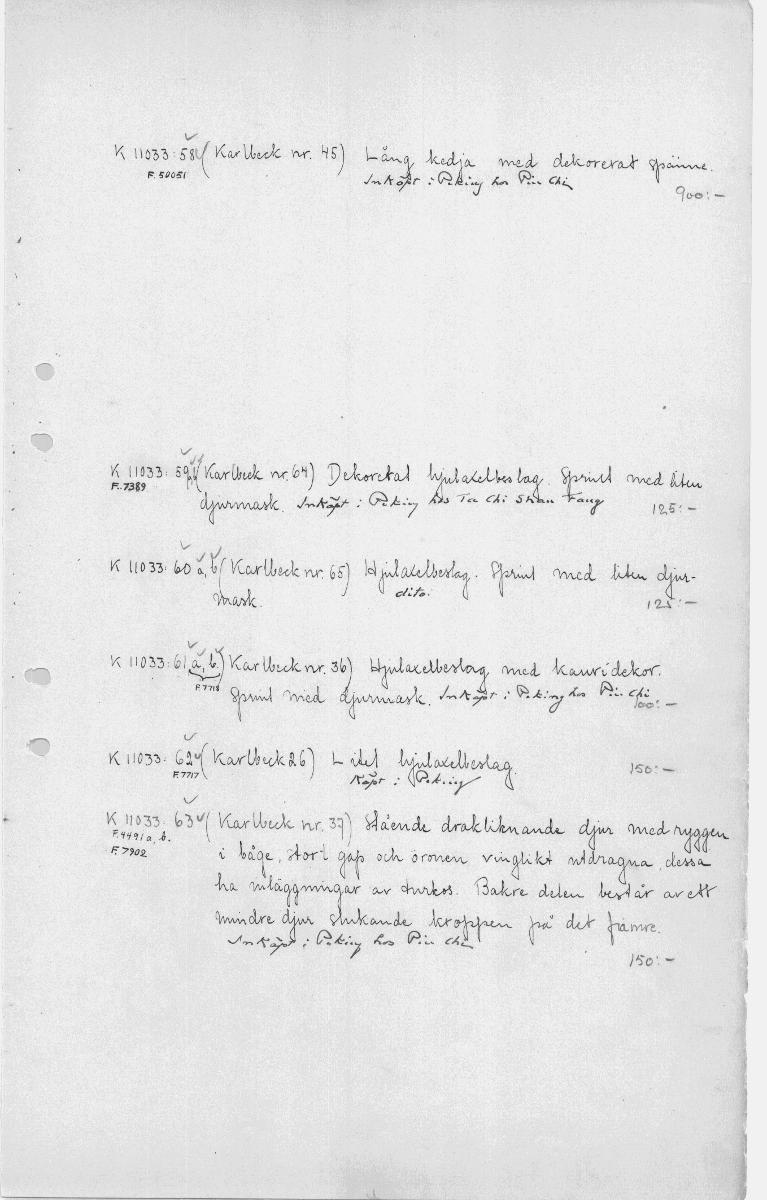 K 11033:58 (Karlbeck nr. 45) Lång kedja med dekorerat spänne.
F. 50051 Inköpt i Peking hos Pin Chi
900:-
K 11033:59a,b (Karlbeck nr. 64) Dekorerat hjulaxelbeslag. Sprint med liten
F. 7389
djurmask. Inköpt i Peking hos Ta Chi Shan Fang 125:-
K 11033:60 a, b (Karlbeck nr. 65) Hjulaxelbeslag. Sprint med liten djur-
mask. dito. 125:-
K 11033:61 a, b. (Karlbeck nr. 36) Hjulaxelbeslag med kauridekor.
F. 7718
Sprint med djurmask. Inköpt i Peking hos Pin Chi
00:-
K 11033:62 (Karlbeck 26) Litet hjulaxelbeslag. 150:-
F. 7717 Köpt i Peking
K 11033:63 (Karlbeck nr. 37) Stående drakliknande djur med ryggen
F. 4491 a, b.
i båge, stort gap och öronen vinglikt utdragna, dessa
F. 7902
ha inläggningar av turkos. Bakre delen består av ett
mindre djur slukande kroppen på det främre.
Inköpt i Peking hos Pin Chi
150:-